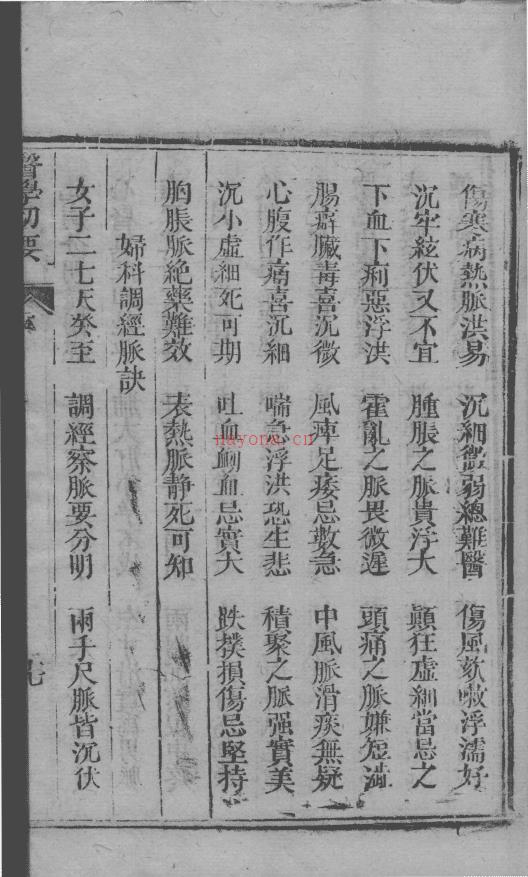 傷寒病熱脈洪易　沉細微弱總難醫　傷風欬嗽浮濡好
沉牢絃伏又不宜　腫脹之脈貴浮大　顛狂虛細當忌之
下血下痢惡浮洪　霍亂之脈畏微遲　頭痛之脈嫌短澁
腸癖臟毒喜沉微　風痺足痿忌數急　中風脈滑痰無疑
心腹作痛喜沉細　喘急浮洪恐生悲　積聚之脈强實美
沉小虛細死可期　吐血衂血忌實大　跌撲損傷忌堅持
胸脹脈絶藥難效　表熱脈静死可知
婦科調經脈訣
女子二七天癸至　調經察脈要分明　兩手尺脈皆沉伏
醫學切要
nayona.cn